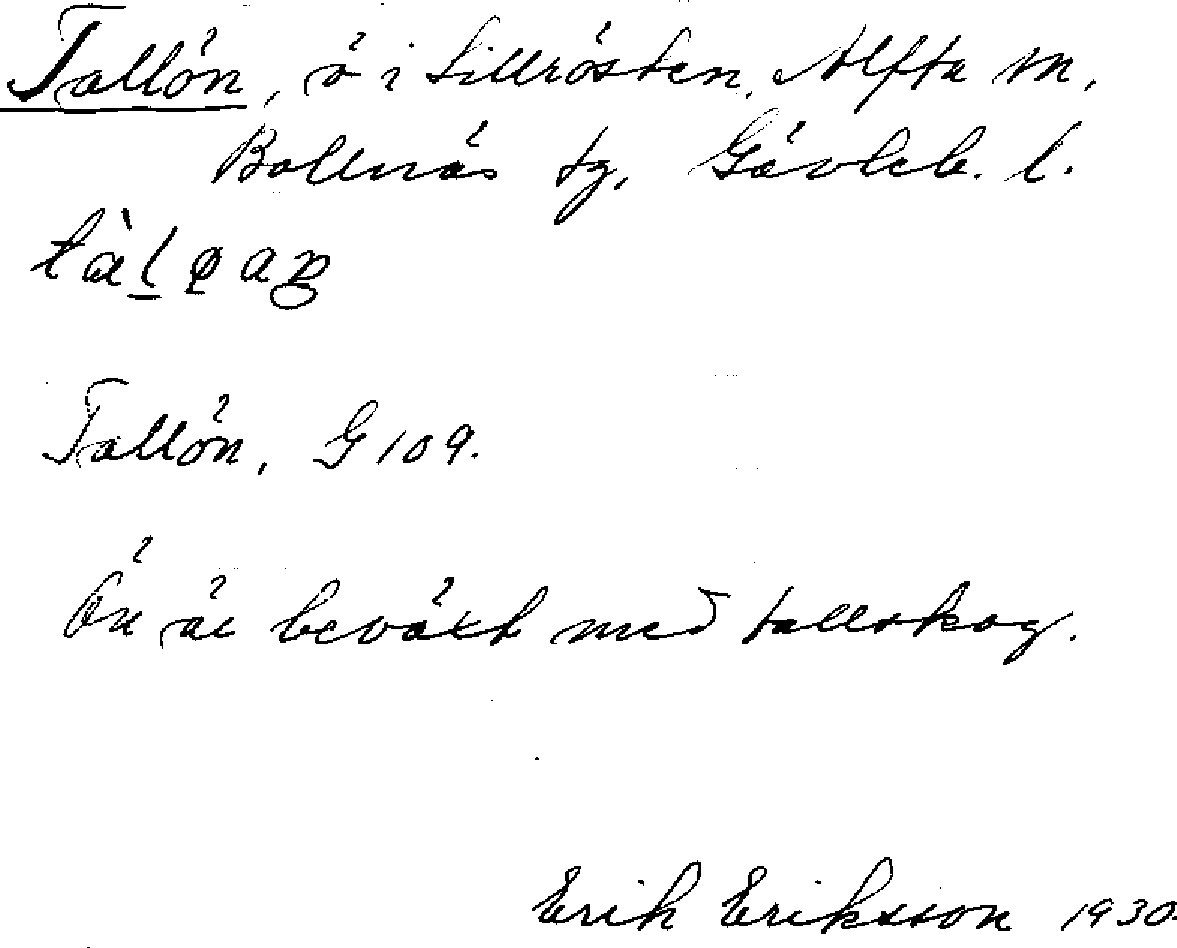 Tallön, ö i Lillrösten, Alfta sn,
Bollnäs tg, Gävleb. l.
Tallön, G 109.
Ön är beväxt med tallskog.
Erik Eriksson 1930.